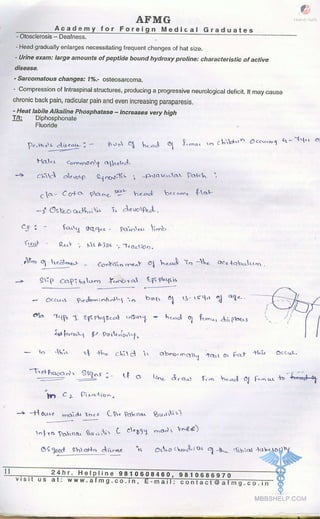 AFMG
Academy for Foreign Medical Graduates
- Otosclerosis – Deafness.
- Head gradually enlarges necessitating frequent changes of hat size.
- Urine exam: large amounts of peptide bound hydroxy proline: characteristic of active
disease.
- Sarcomatous changes: 1%.- osteosarcoma.
- Compression of Intraspinal structures, producing a progressive neurological deficit. It may cause
chronic back pain, radicular pain and even increasing paraparesis.
- Heat labile Alkaline Phosphatase – Increases very high
T/t: Diphosphonate
Fluoride
Perthe's disease :- of head of Femur in children occuring 4-
Males commonly affected.
→ Child develop Synovitis ;
plane head becomes flat
→ Osteoarthritis is developed.
C.F :- Early - Painless limb
Treat - Rest ; NSAIDs ; Traction.
Aim of treatment - Containment of head in the acetabulum.
→ Slip capital femoral Epiphysis
- Occurs Predominantly in boys of 13-15 yr of age.
Type I Epiphyseal injury - head of femur displaces
& Posteriorly.
- In this if the child is abnormally tall or Fat this occurs.
Trethowan's Sign :- if a line draw from head of Femur to
in Direction.
→ House maids knee (Pre Patellar Bursitis)
Infra Patellar Bursitis (Clergy mans knee)
Osgood Shlatter disease is Osteochondritis of the Tibial tuberosity
11 24hr. Helpline 9810608460, 9810686970
visit us at: www.afmg.co.in, E-mail: contact@afmg.co.in
MBBSHELP.COM